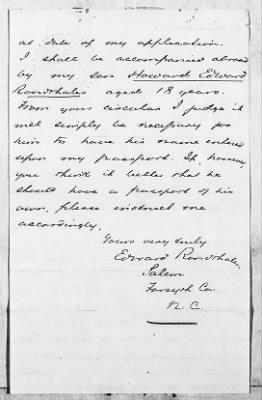 at date of my application.
I shall be accompanied abroad
by my son Howard Edward
Rondthaler aged 18 years.
From your circular I judge it
will simply be necessary for
him to have his name entered
upon my passport. If, however,
you think it better that he
should have a passport of his
own, please instruct me
accordingly.
Yours very truly
Edward Rondthaler,
Salem
Forsyth Co.
N. C.